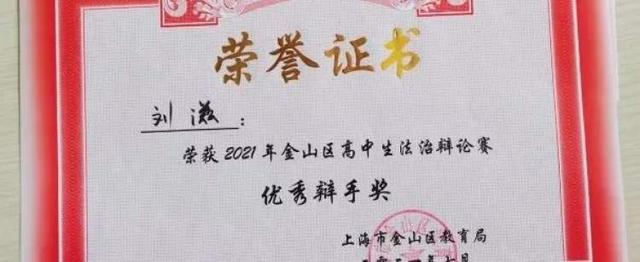 荣誉证书
刘滋:
荣获2021年金山区高中生法治辩论赛
优秀辩手奖
上海市金山区教育局